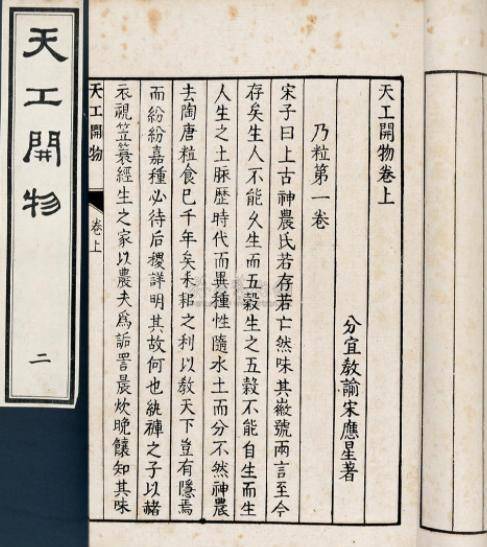 天工開物卷上
分宜敎諭宋應星著
乃粒第一卷
宋子曰上古神農氏若存若亡然味其徽號兩言至今
存矣生人不能久生而五穀生之五穀不能自生而生
人生之土脉歷時代而異種性隨水土而分不然神農
去陶唐粒食已千年矣耒耜之利以敎天下豈有隱焉
而紛紛嘉種必待后稷詳明其故何也紈褲之子以赭
衣視笠蓑經生之家以農夫爲詬詈晨炊晚饟知其味
天工開物
卷上
天工開物
二